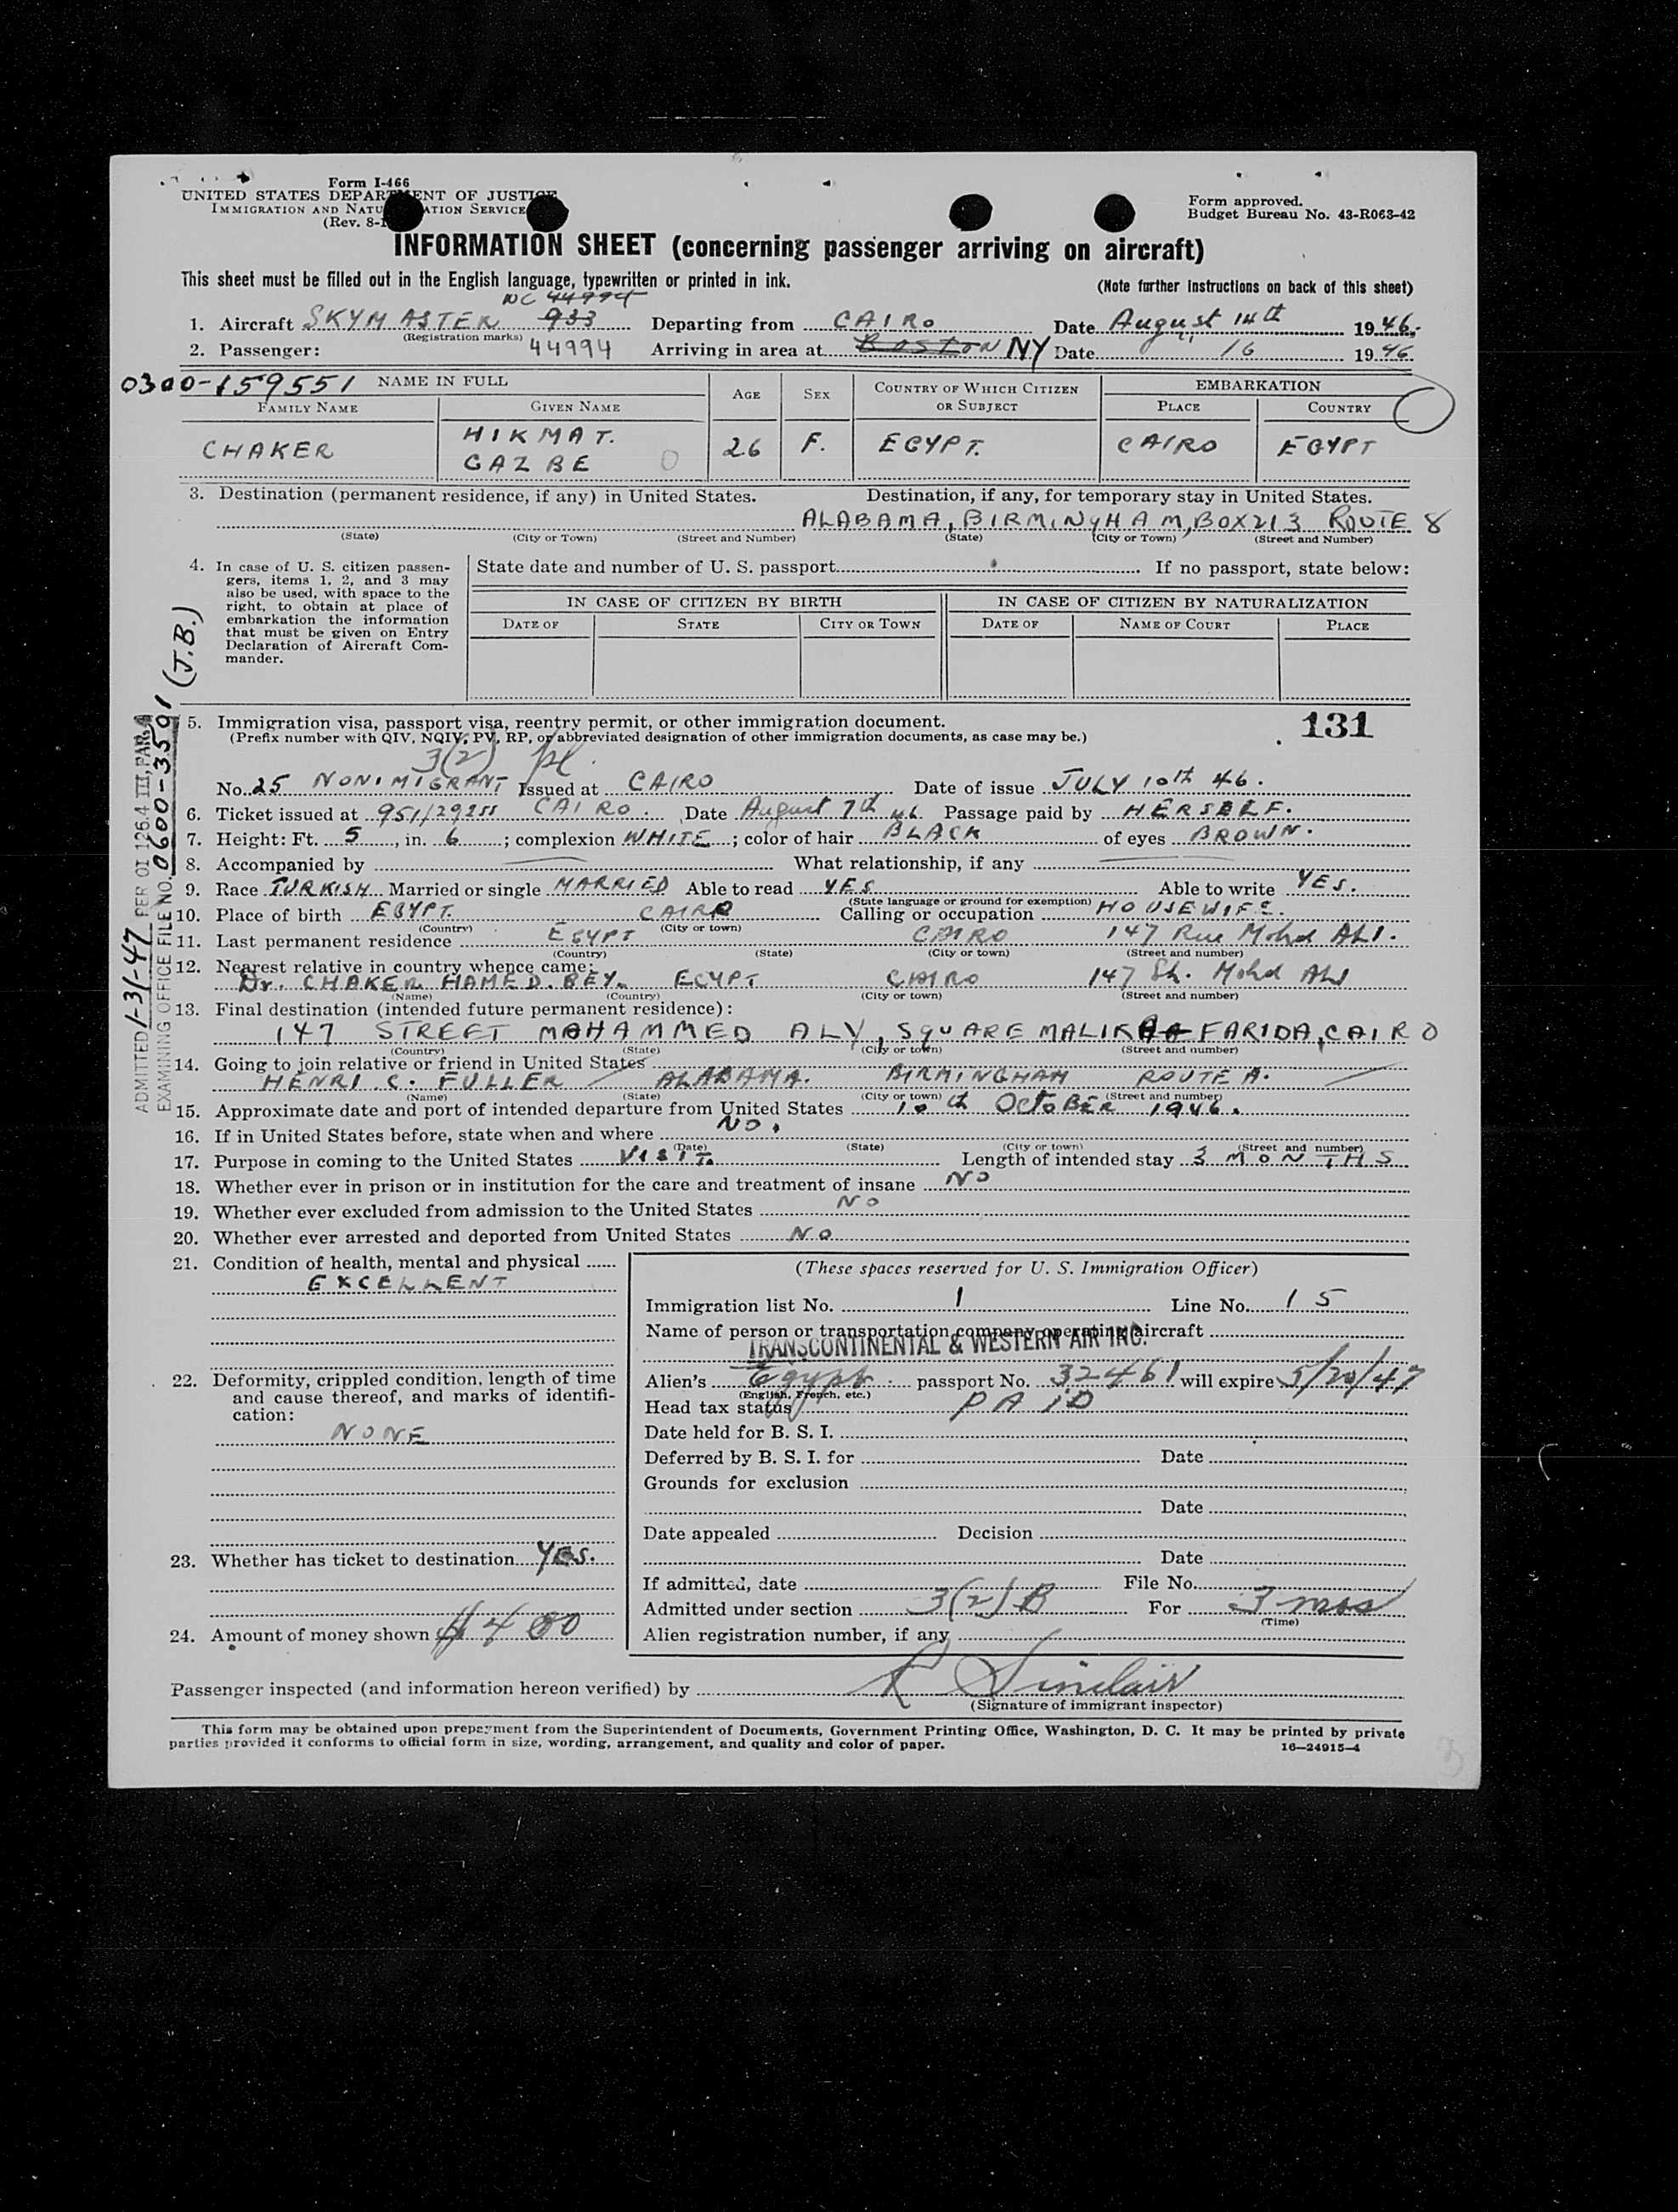 Form I-466
UNITED STATES DEPARTMENT OF JUSTICE
IMMIGRATION AND NATU ATION SERVICE
(Rev. 8-1
Form approved.
Budget Bureau No. 43-R063-42
INFORMATION SHEET (concerning passenger arriving on aircraft)
This sheet must be filled out in the English language, typewritten or printed in ink. (Note further instructions on back of this sheet)
NC 44994
1. Aircraft SKYMASTER 933 Departing from CAIRO Date August 14th 1946.
(Registration marks)
2. Passenger: 44994 Arriving in area at BOSTON NY Date " 16 1946
0300-159551 NAME IN FULL AGE SEX COUNTRY OF WHICH CITIZEN OR SUBJECT EMBARKATION
FAMILY NAME GIVEN NAME PLACE COUNTRY
CHAKER HIKMAT. GAZBE 0 26 F. EGYPT. CAIRO EGYPT
3. Destination (permanent residence, if any) in United States. Destination, if any, for temporary stay in United States.
ALABAMA, BIRMINGHAM, BOX 213 ROUTE 8
(State) (City or Town) (Street and Number) (State) (City or Town) (Street and Number)
4. In case of U. S. citizen passengers, items 1, 2, and 3 may also be used, with space to the right, to obtain at place of embarkation the information that must be given on Entry Declaration of Aircraft Commander.
State date and number of U. S. passport If no passport, state below:
IN CASE OF CITIZEN BY BIRTH IN CASE OF CITIZEN BY NATURALIZATION
DATE OF STATE CITY OR TOWN DATE OF NAME OF COURT PLACE
ADMITTED 1-31-47 PER OI 126.4 III, PAR. A
EXAMINING OFFICE FILE NO. 0600-3591 (J.B.)
5. Immigration visa, passport visa, reentry permit, or other immigration document. 131
(Prefix number with QIV, NQIV, PV, RP, or abbreviated designation of other immigration documents, as case may be.)
3(2)
No. 25 NONIMIGRANT Issued at CAIRO Date of issue JULY 10th 46.
6. Ticket issued at 951/29255 CAIRO. Date August 7th 46 Passage paid by HERSELF.
7. Height: Ft. 5, in. 6; complexion WHITE; color of hair BLACK of eyes BROWN.
8. Accompanied by What relationship, if any
9. Race TURKISH Married or single MARRIED Able to read YES Able to write YES.
(State language or ground for exemption)
10. Place of birth EGYPT. CAIRO Calling or occupation HOUSEWIFE.
(Country) (City or town)
11. Last permanent residence EGYPT CAIRO 147 Rue Mohd ALI.
(Country) (State) (City or town) (Street and number)
12. Nearest relative in country whence came:
Dr. CHAKER HAMED. BEY. EGYPT CAIRO 147 Sh. Mohd Ali
(Name) (Country) (City or town) (Street and number)
13. Final destination (intended future permanent residence):
147 STREET MOHAMMED ALY, SQUARE MALIKA FARIDA, CAIRO
(Country) (State) (City or town) (Street and number)
14. Going to join relative or friend in United States
HENRI C. FULLER ALABAMA. BIRMINGHAM ROUTE A.
(Name) (State) (City or town) (Street and number)
15. Approximate date and port of intended departure from United States 10th OCTOBER 1946.
16. If in United States before, state when and where NO.
(Date) (State) (City or town) (Street and number)
17. Purpose in coming to the United States VISIT. Length of intended stay 3 MONTHS
18. Whether ever in prison or in institution for the care and treatment of insane NO
19. Whether ever excluded from admission to the United States NO
20. Whether ever arrested and deported from United States NO
21. Condition of health, mental and physical
EXCELLENT
22. Deformity, crippled condition, length of time and cause thereof, and marks of identification:
NONE
23. Whether has ticket to destination YES.
24. Amount of money shown $400
(These spaces reserved for U. S. Immigration Officer)
Immigration list No. 1 Line No. 15
Name of person or transportation company operating aircraft
TRANSCONTINENTAL & WESTERN AIR INC.
Alien's Egypt. passport No. 32461 will expire 5/20/47
(English, French, etc.)
Head tax status PAID
Date held for B. S. I.
Deferred by B. S. I. for Date
Grounds for exclusion
Date
Date appealed Decision
Date
If admitted, date File No.
Admitted under section 3(2)B For 3 mos
(Time)
Alien registration number, if any
Passenger inspected (and information hereon verified) by R Sinclair
(Signature of immigrant inspector)
This form may be obtained upon prepayment from the Superintendent of Documents, Government Printing Office, Washington, D. C. It may be printed by private
parties provided it conforms to official form in size, wording, arrangement, and quality and color of paper. 16—24915-4